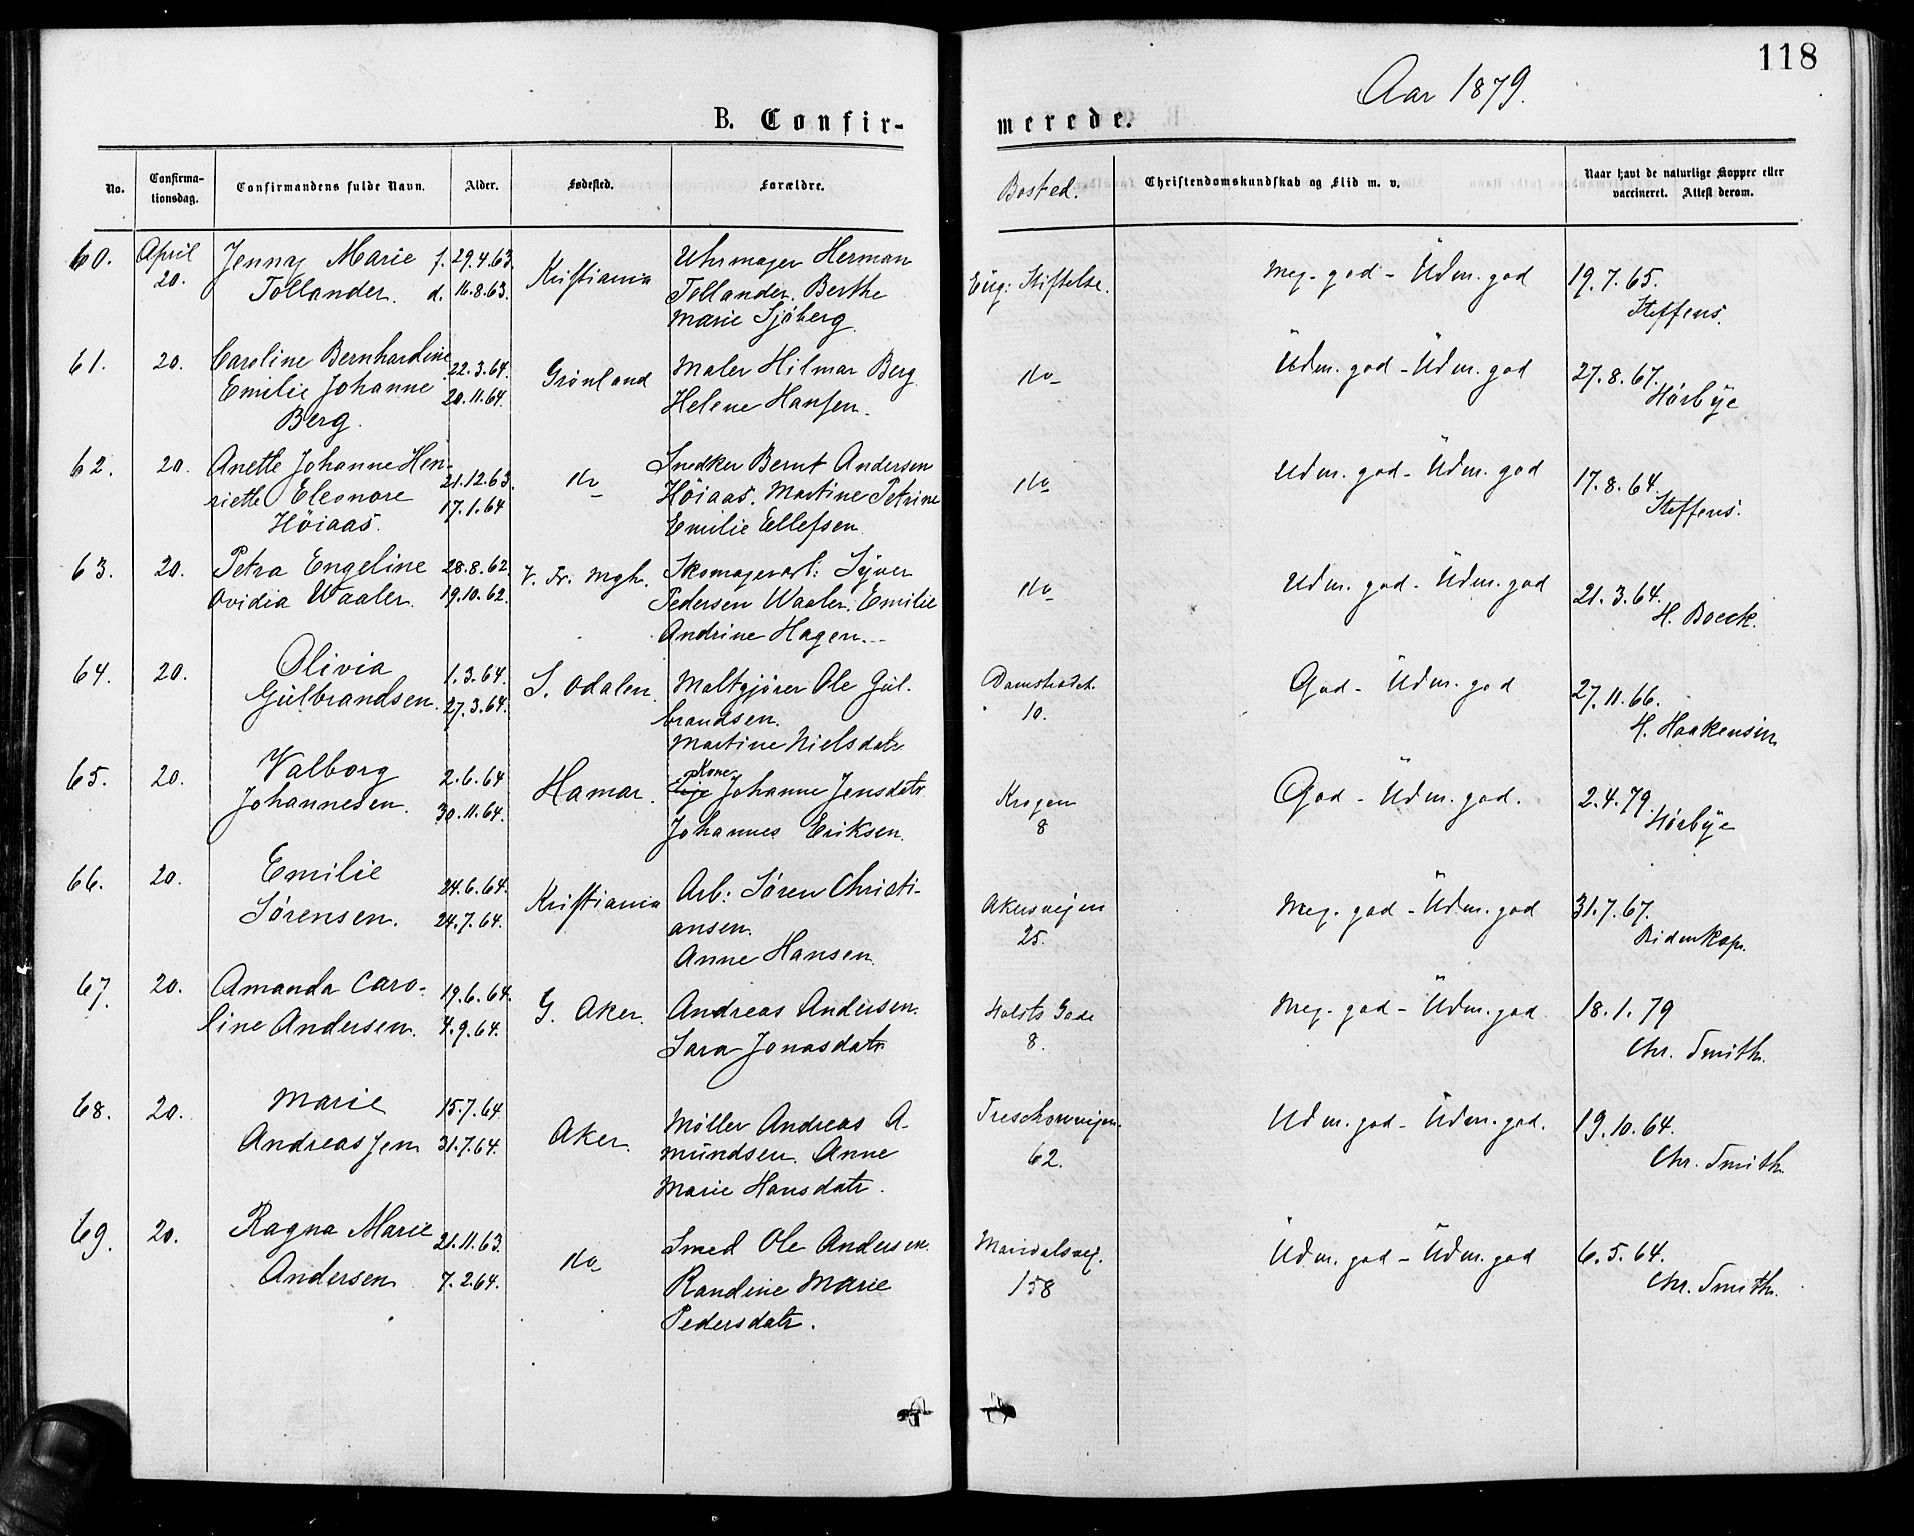 118
Aar 1879.
B. Confir-
merede.
No.
Confirma-
tionsdag.
Confirmandens fulde Navn.
Alder.
Fødested.
Forældre.
Bosted.
Christendomskundskab og Flid m. v.
Naar havt de naturlige Kopper eller
vaccineret. Attest derom.
60. April Jenny Marie f. 29.4.63. Kristiania Uhrmager Herman Eug: Stiftelse. Meg. god - Üdm. god 19.7.65.
20. Tollander. d. 16.8.63. Tollander. Berthe Steffens.
Marie Sjöberg.
61. 20. Caroline Bernhardine 22.3.64. Grönland Maler Hilmar Berg. do Üdm. god - Üdm. god 27.8.67.
Emilie Johanne 20.11.64. Helene Hansen. Hörbÿe
Berg.
62. 20. Anette Johanne Hen- 21.12.63. do Snedker Bernt Andersen do Udm. god - Üdm. god 17.8.64.
riette Eleonore 17.1.64 Höiaas. Martine Petrine Steffens.
Höiaas. Emilie Ellefsen.
63. 20. Petra Engeline 28.8.62. V. Fr. Mgh. Skomagerarb: Syver do Udm. god - Üdm. god 21.3.64.
Ovidia Waaler. 19.10.62. Pedersen Waaler. Emilie H. Boeck.
Andrine Hagen.
64. 20. Olivia 1.3.64. S. Odalen. Maltgjörer Ole Gul- Damstrædet. God - Üdm. god 27.11.66.
Gülbrandsen. 27.3.64. brandsen. 10. H. Haakensen
Martine Nielsdatr
65. 20. Valborg 2.6.64 Hamar. Kone Johanne Jensdatr Krogen God - Üdm. god. 2.4.79.
Johannesen. 30.11.64. Johannes Eriksen. 8 Hörbÿe
66. 20. Emilie 24.6.64. Kristiania Arb: Sören Christi- Akersvejen Meg. god - Üdm. god 31.7.67.
Sörensen. 24.7.64. ansen. 25. Bidenkap.
Anne Hansen.
67. 20. Amanda Caro- 19.6.64. G. Aker. Andreas Andersen. Holsts Gade Meg. god - Üdm. god. 18.1.79
line Andersen. 4.9.64. Sara Jonasdatr 8. Chr. Smith.
68. 20. Marie 15.7.64. Aker. Möller Andreas A- Treschowvejen. Udm. god - Üdm. god. 19.10.64.
Andreasjen 31.7.64. mündsen. Anne 62. Chr. Smith.
Marie Hansdatr.
69. 20. Ragna Marie 21.11.63. do Smed Ole Andersen. Maridalsvej. Üdm. god - Üdm. god 6.5.64.
Andersen 7.2.64. Randine Marie 158 Chr. Smith.
Pedersdatr.